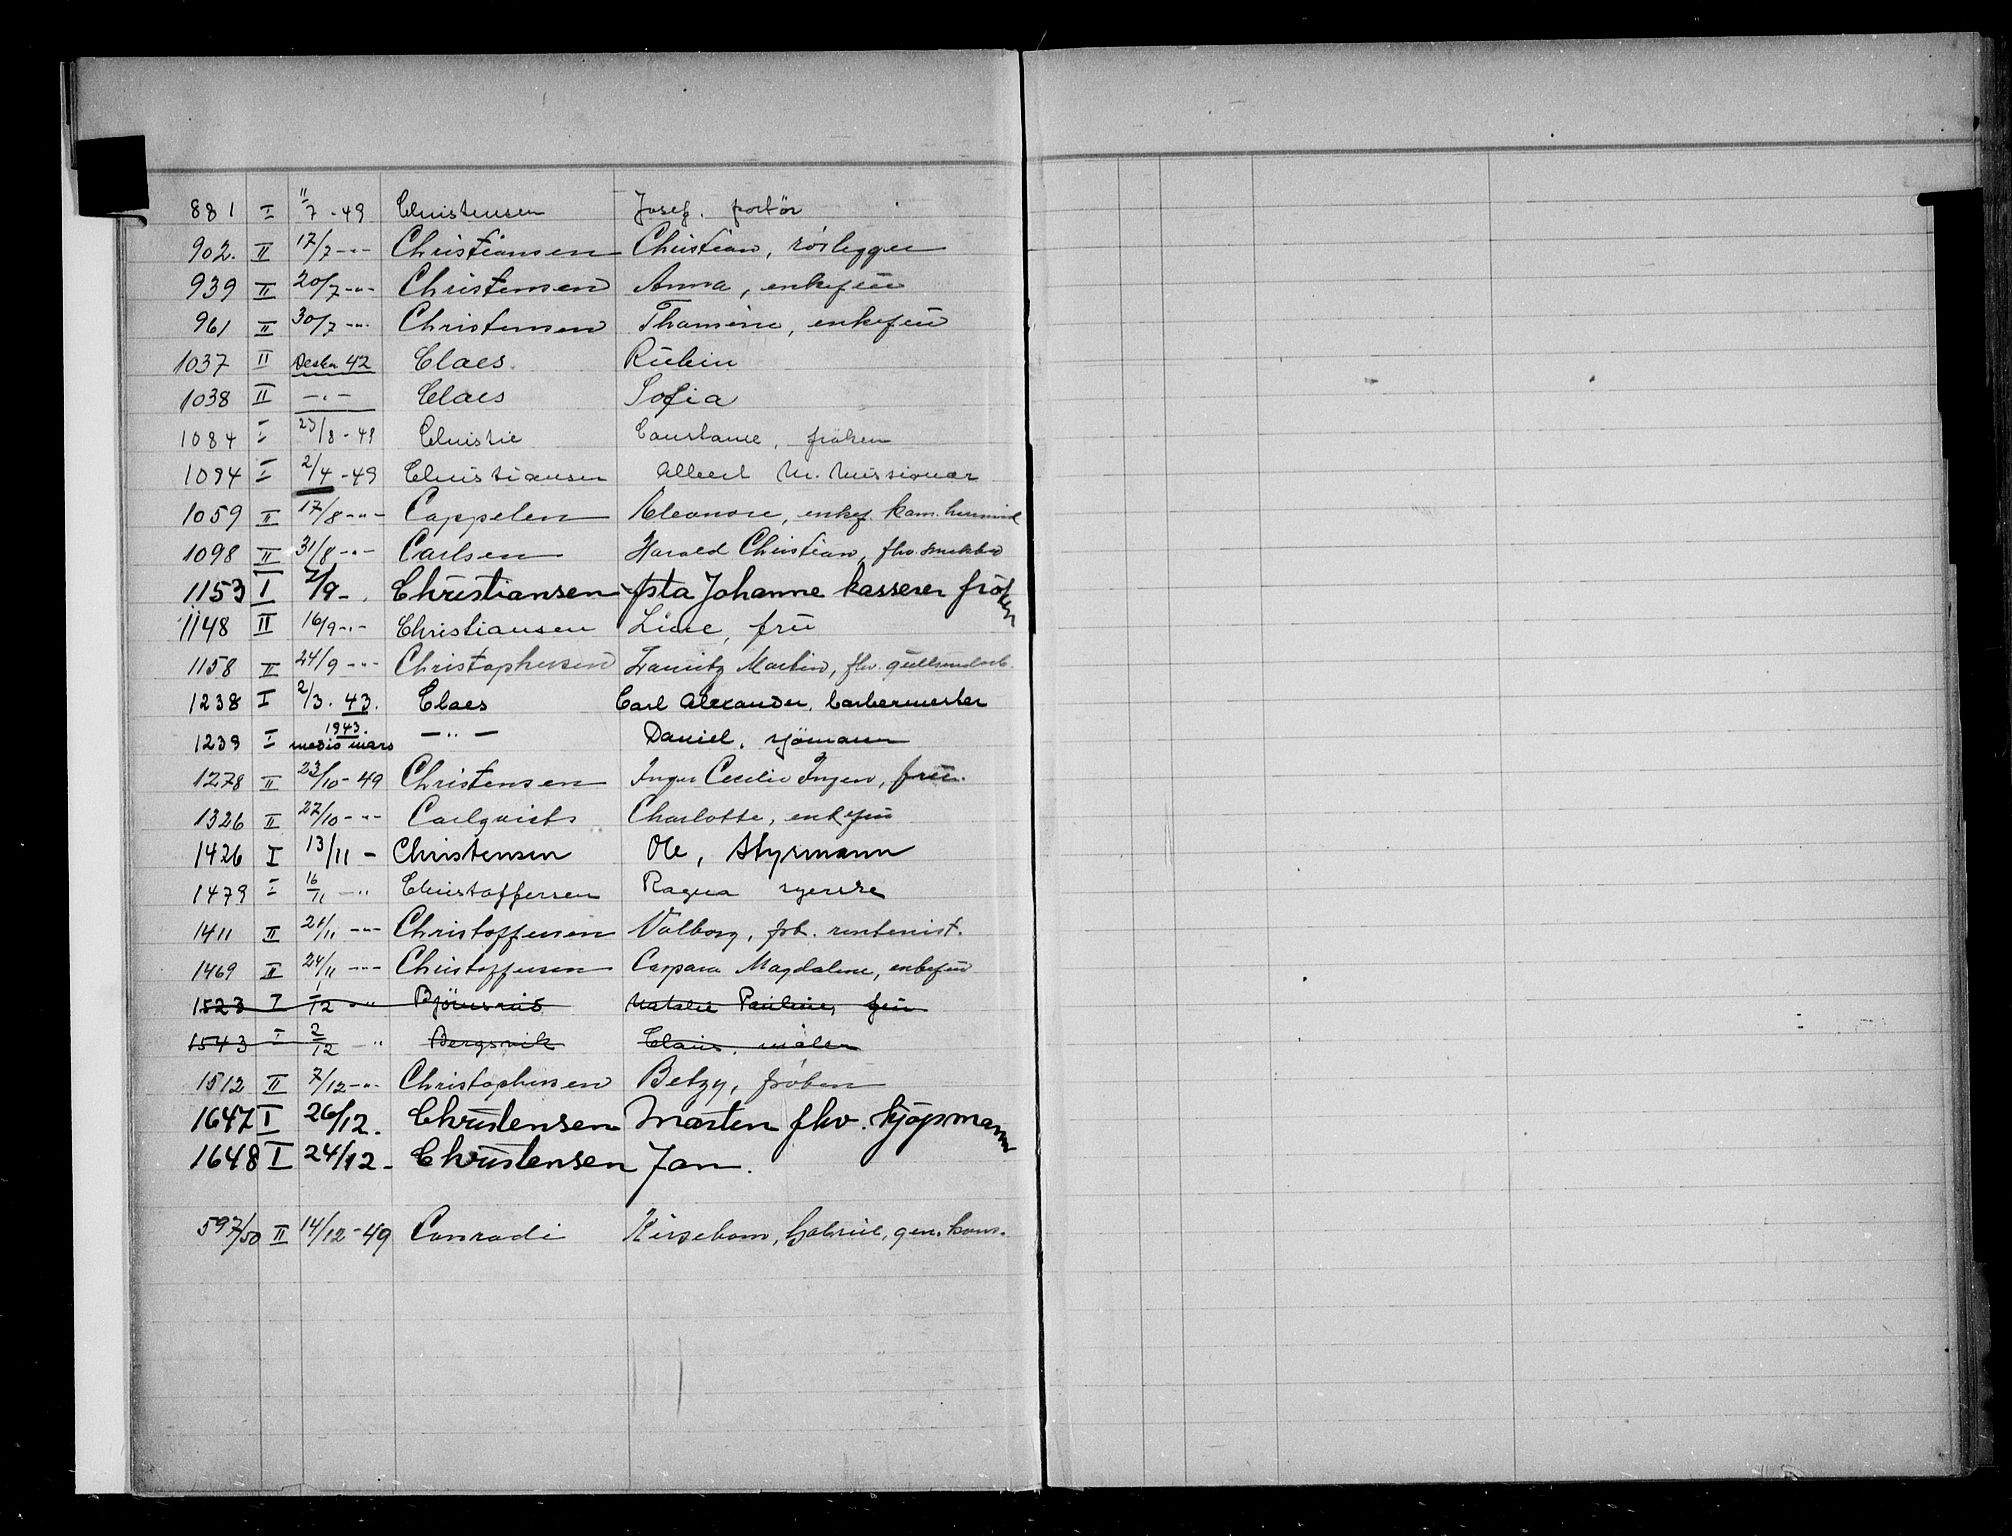 881 I 11/7 - 49 Christensen Josef. portör
902. II 17/7 -"- Christiansen Christian, rörlegger
939 II 20/7 -"- Christensen Anna, enkefru
961 II 30/7 -"- Christensen Thomine, enkefru
1037 II Desbr 42 Claes. Rubin
1038 II -"- Claes Sofia
1084 I 23/8 - 49 Christie Constance, fröken
1094 I 2/4 - 49 Christiansen Albert M. Missionær
1059 II 17/8 -"- Cappelen Eleonore, enkef.
1098 II 31/8 -"- Carlsen Harald Christian, fhv.
1153 I 7/9 - Christiansen Asta Johanne kasserer fröken
1148 II 16/9 -"- Christiansen Line, fru
1158 II 24/9 -"- Christophersen Lauritz Martin, fhv. gullsmedarb.
1238 I 2/3. 43. Claes Carl Alexander, barbermester
1239 I 1943. medio mars -"- Daniel, sjömann
1278 II 23/10 - 49 Christensen Inger Cecilie, fru.
1326 II 27/10 -"- Carlqvist Charlotte, enkefru
1426 I 13/11 - Christensen Ole, Styrmann
1479 I 16/11 -" Christoffersen Ragna syerske
1411 II 21/11 -"- Christoffersen Valborg, fhv. rentenist.
1469 II 24/11 -"- Christoffersen Caspara Magdalene, enkefru
1523 I 1/12 -" Natalie Pauline, fru
1543 I 2/12 -" Bergsvik Claus, maler
1512 II 7/12 -"- Christophersen Betzy, fröken
1647 I 26/12. Christensen Marten fhv. kjöpmann
1648 I 24/12 - Christensen Jan.
597/50 II 14/12 - 49 Conradi Kirsebom, Gabriel, gen. kons.